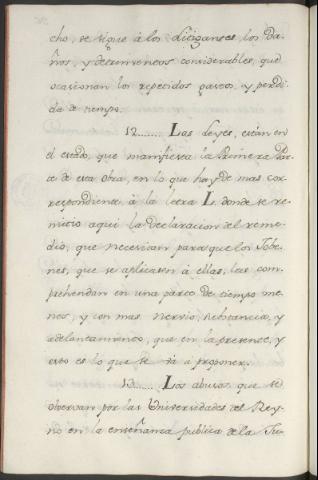 cho, se sigue á los Litigantes, los Da-
ños, y detrimentos considerables, que
ocasionan los repetidos gastos, y perdi-
da de tiempo.
12....... Las Leyes, están en
el estado, que manifiesta la Primera Par-
te de esta Obra, en lo que hay de mas cor-
respondiente, á la letra L. donde se re-
mitió aqui la Declaracion del reme-
dio, que necesitan para que los Jobe-
nes, que se aplicasen á ellas, las com-
prehendan en una parte de tiempo me-
nos, y con mas nervio, substancia, y
adelantamiento, que en la presente, y
esto es lo que se vá á proponer.
13...... Los abusos, que se
observan por las Universidades del Rey-
no en la enseñanza publica de la Ju-